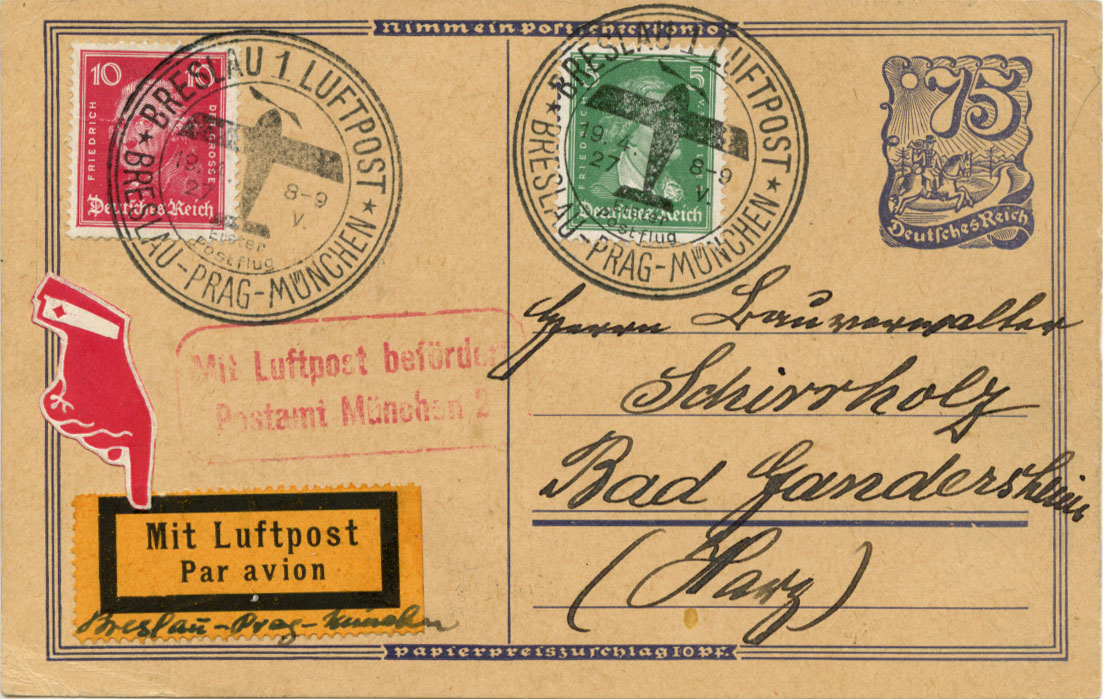 Nimm ein Postscheckkonto
10 10
FRIEDRICH DER GROSSE
Deutsches Reich
BRESLAU 1 LUFTPOST
19.
27
8-9
V.
Erster
Postflug
BRESLAU-PRAG-MÜNCHEN
5
FRIEDRICH
Deutsches Reich
BRESLAU 1 LUFTPOST
19.4.
27
8-9
V.
Postflug
BRESLAU-PRAG-MÜNCHEN
75
Deutsches Reich
Mit Luftpost befördert
Postamt München 2
Herrn Bauverwalter
Schirrholz
Bad Gandersheim
(Harz)
Mit Luftpost
Par avion
Breslau-Prag-München
Papierpreiszuschlag 10 Pf.